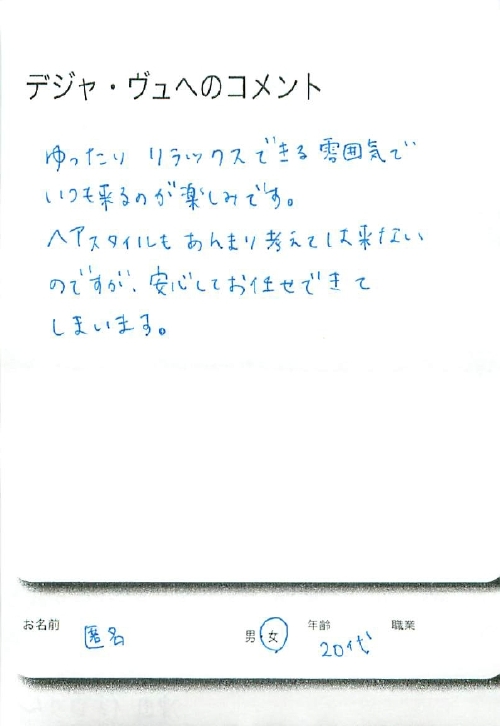 デジャ・ヴュへのコメント
ゆったり リラックスできる雰囲気で
いつも来るのが楽しみです。
ヘアスタイルも あんまり考えては来ない
のですが、安心してお任せできて
しまいます。
お名前 匿名 男・女 年齢 20代 職業